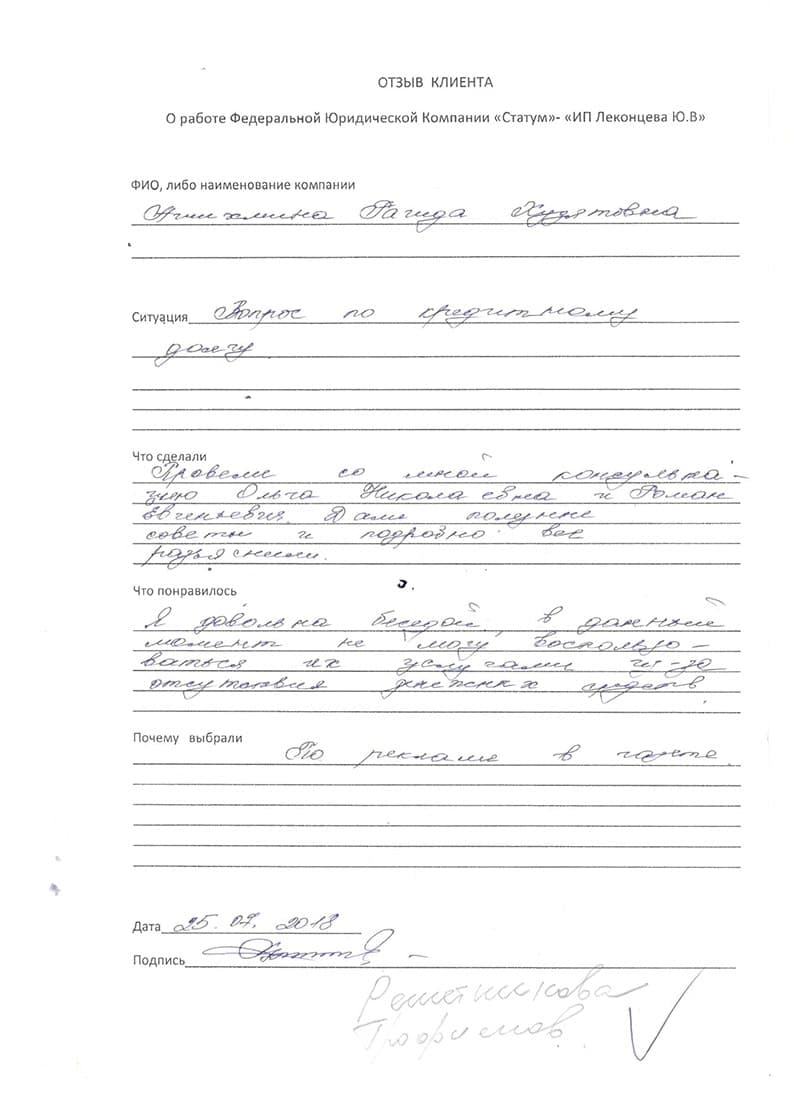 ОТЗЫВ КЛИЕНТА
О работе Федеральной Юридической Компании «Статум»- «ИП Леконцева Ю.В»
ФИО, либо наименование компании
Рагида
Ситуация Вопрос по кредитному
долгу
Что сделали
Провели со мной консульта-
цию Ольга Николаевна и Роман
Евгеньевич. Дали полезные
советы и подробно все
разъяснили.
Что понравилось
Я довольна беседой, в данный
момент не могу воспользо-
ваться их услугами из-за
отсутствия денежных средств
Почему выбрали
По рекламе в газете.
Дата 25.07.2018
Подпись
Решетникова
Трофимов